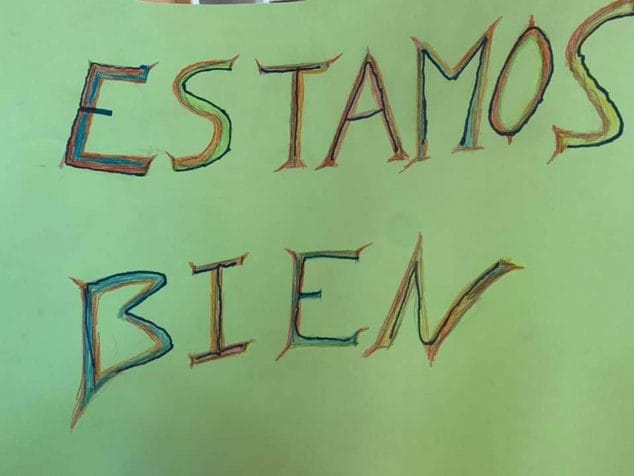 ESTAMOS
BIEN